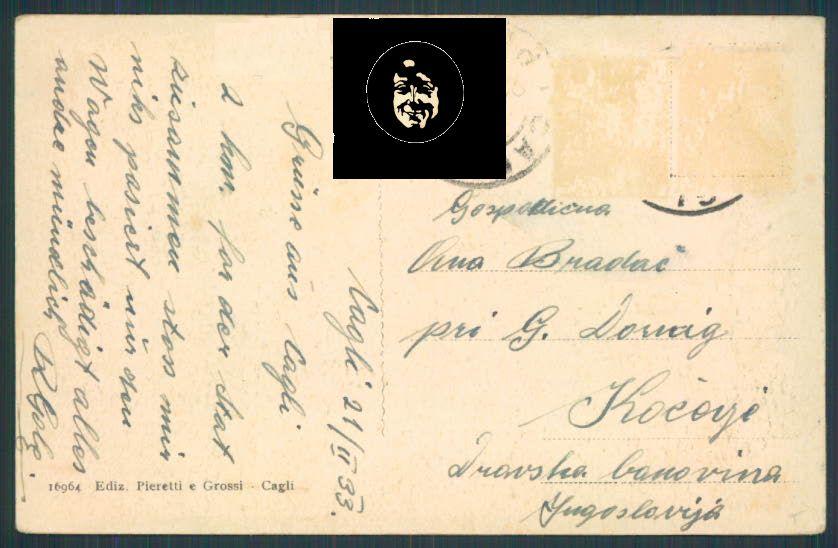 Cagli 21/II 33.
Grüsse aus Cagli
2 km. for der stat
zusammen stos mir
niks pasiert nur den
Wagen beschädigt alles
andre mündlich
Gospodicna
Ana Bradač
pri G.
Kočevje
Dravska banovina
Jugoslavija
16964 Ediz. Pieretti e Grossi - Cagli